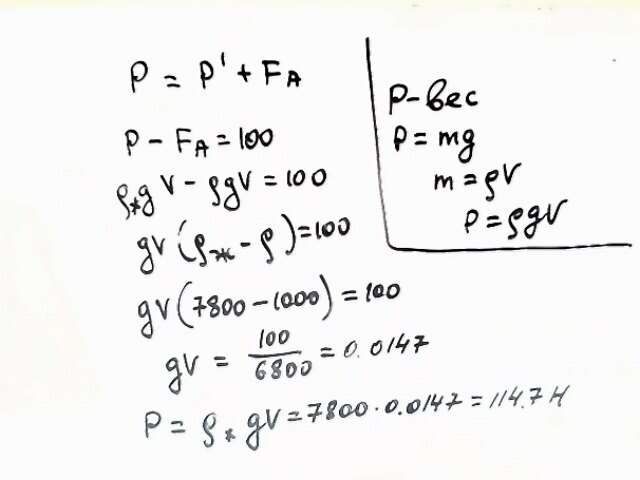 P = P' + FA
P - FA = 100
ρ*gV - ρgV = 100
gV(ρж - ρ) = 100
gV(7800 - 1000) = 100
gV = 100/6800 = 0.0147
P = ρ* gV = 7800 · 0.0147 = 114.7 Н
P-вес
P = mg
m = ρV
P = ρgV